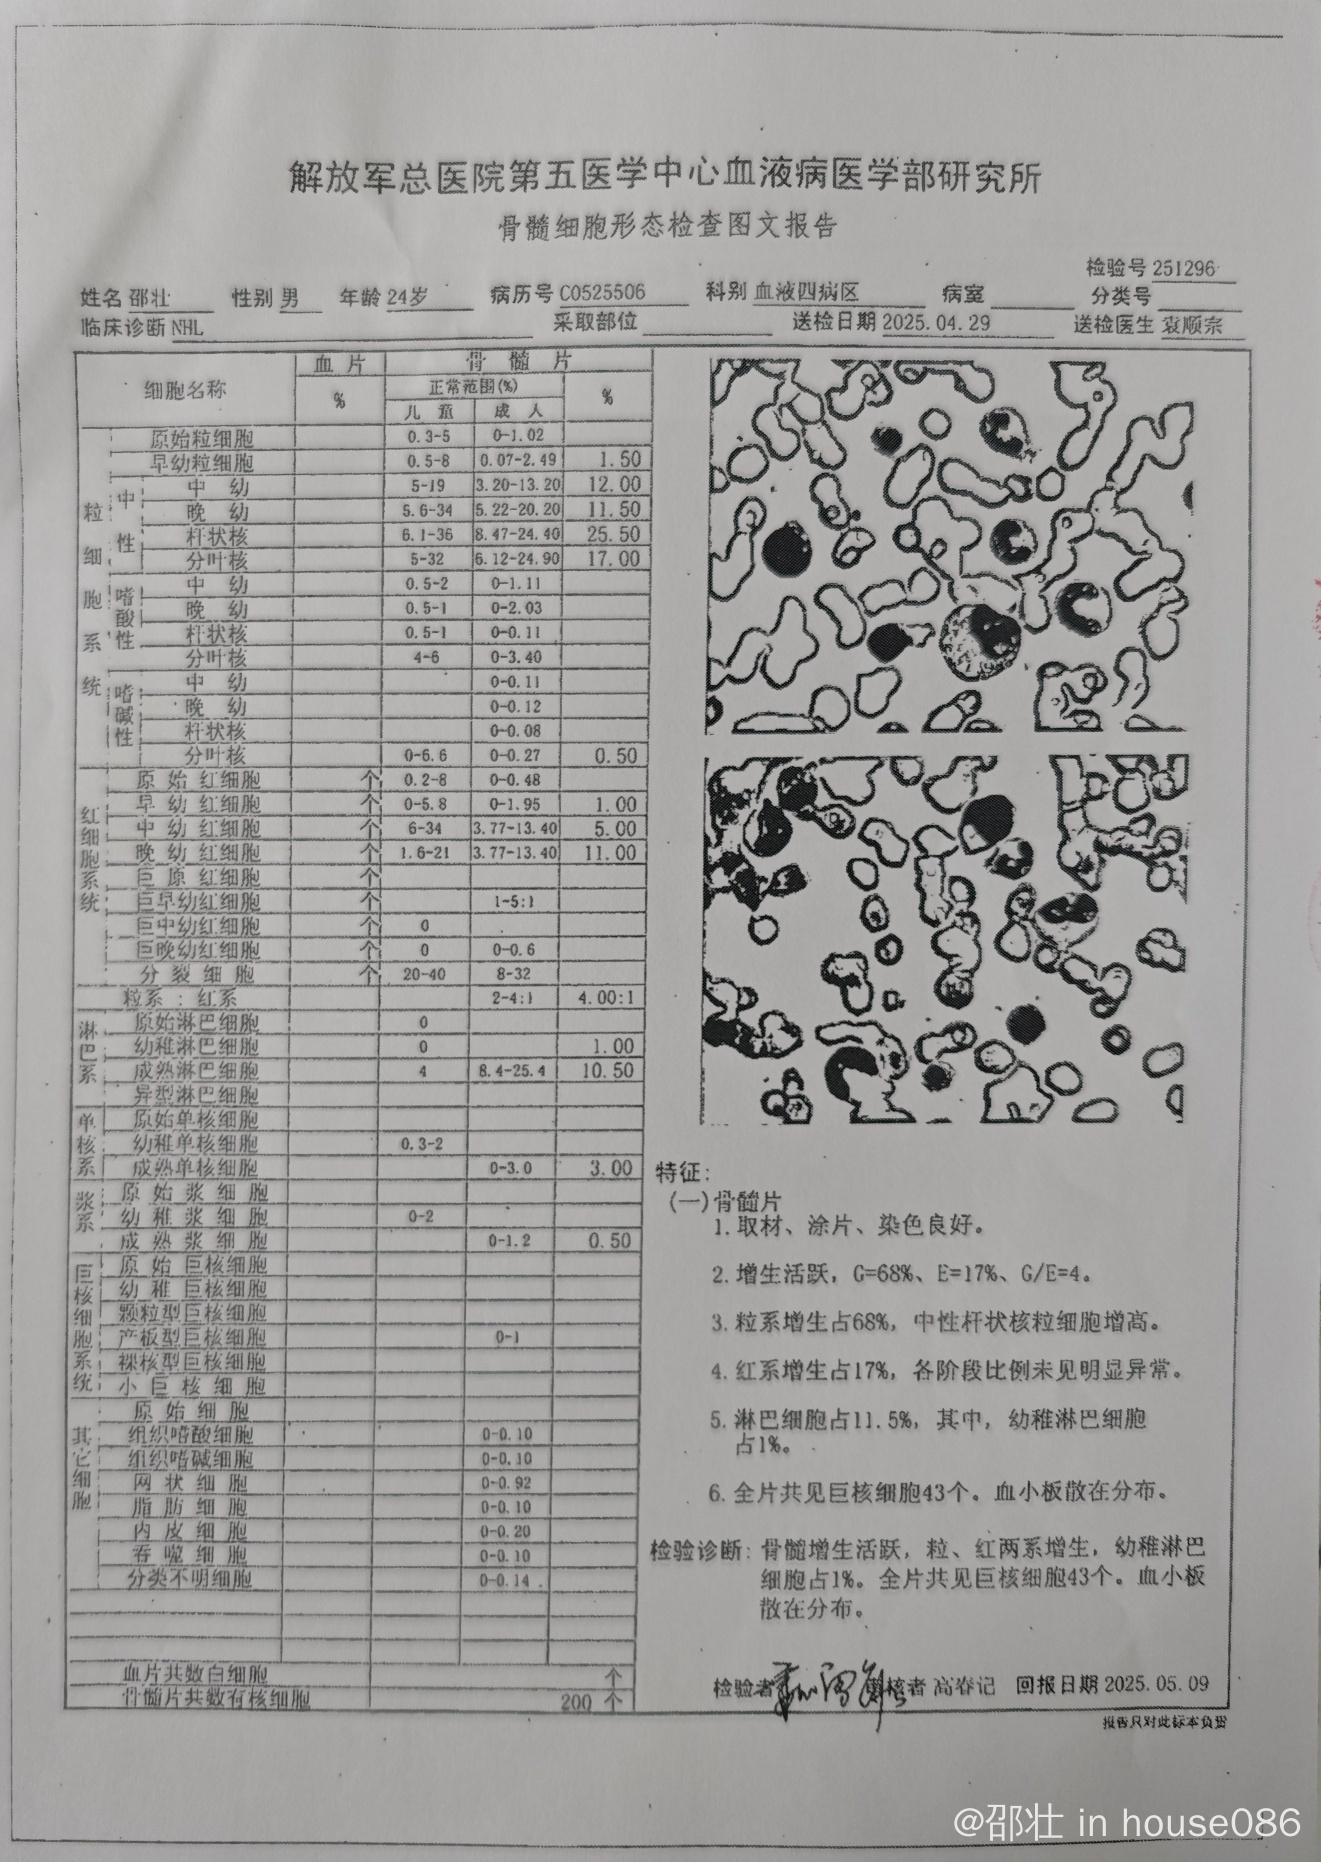 解放军总医院第五医学中心血液病医学部研究所
骨髓细胞形态检查图文报告
检验号 251296
姓名 邵壮 性别 男 年龄 24岁 病历号 C0525506 科别 血液四病区 病室 分类号
临床诊断 NHL 采取部位 送检日期 2025.04.29 送检医生 袁顺宗
细胞名称 血片 骨髓片
% 正常范围(%) %
儿童 成人
粒细胞系统
原始粒细胞 0.3-5 0-1.02
早幼粒细胞 0.5-8 0.07-2.49 1.50
中性
中幼 5-19 3.20-13.20 12.00
晚幼 5.6-34 5.22-20.20 11.50
杆状核 6.1-36 8.47-24.40 25.50
分叶核 5-32 6.12-24.90 17.00
嗜酸性
中幼 0.5-2 0-1.11
晚幼 0.5-1 0-2.03
杆状核 0.5-1 0-0.11
分叶核 4-6 0-3.40
嗜碱性
中幼 0-0.11
晚幼 0-0.12
杆状核 0-0.08
分叶核 0-6.6 0-0.27 0.50
红细胞系统
原始红细胞 个 0.2-8 0-0.48
早幼红细胞 个 0-5.8 0-1.95 1.00
中幼红细胞 个 6-34 3.77-13.40 5.00
晚幼红细胞 个 1.6-21 3.77-13.40 11.00
巨原红细胞 个
巨早幼红细胞 个 1-5:1
巨中幼红细胞 个 0
巨晚幼红细胞 个 0 0-0.6
分裂细胞 个 20-40 8-32
粒系:红系 2-4:1 4.00:1
淋巴系
原始淋巴细胞 0
幼稚淋巴细胞 0 1.00
成熟淋巴细胞 4 8.4-25.4 10.50
异型淋巴细胞
单核系
原始单核细胞
幼稚单核细胞 0.3-2
成熟单核细胞 0-3.0 3.00
浆系
原始浆细胞
幼稚浆细胞 0-2
成熟浆细胞 0-1.2 0.50
巨核细胞系统
原始巨核细胞
幼稚巨核细胞
颗粒型巨核细胞
产板型巨核细胞 0-1
裸核型巨核细胞
小巨核细胞
其它细胞
原始细胞
组织嗜酸细胞 0-0.10
组织嗜碱细胞 0-0.10
网状细胞 0-0.92
脂肪细胞 0-0.10
内皮细胞 0-0.20
吞噬细胞 0-0.10
分类不明细胞 0-0.14
血片共数白细胞 个
骨髓片共数有核细胞 200 个
特征:
(一)骨髓片
1.取材、涂片、染色良好。
2.增生活跃，G=68%、E=17%、G/E=4。
3.粒系增生占68%，中性杆状核粒细胞增高。
4.红系增生占17%，各阶段比例未见明显异常。
5.淋巴细胞占11.5%，其中，幼稚淋巴细胞
占1%。
6.全片共见巨核细胞43个。血小板散在分布。
检验诊断:骨髓增生活跃，粒、红两系增生，幼稚淋巴
细胞占1%。全片共见巨核细胞43个。血小板
散在分布。
检验者 审核者 高春记 回报日期 2025.05.09
报告只对此标本负责
@邵壮 in house086